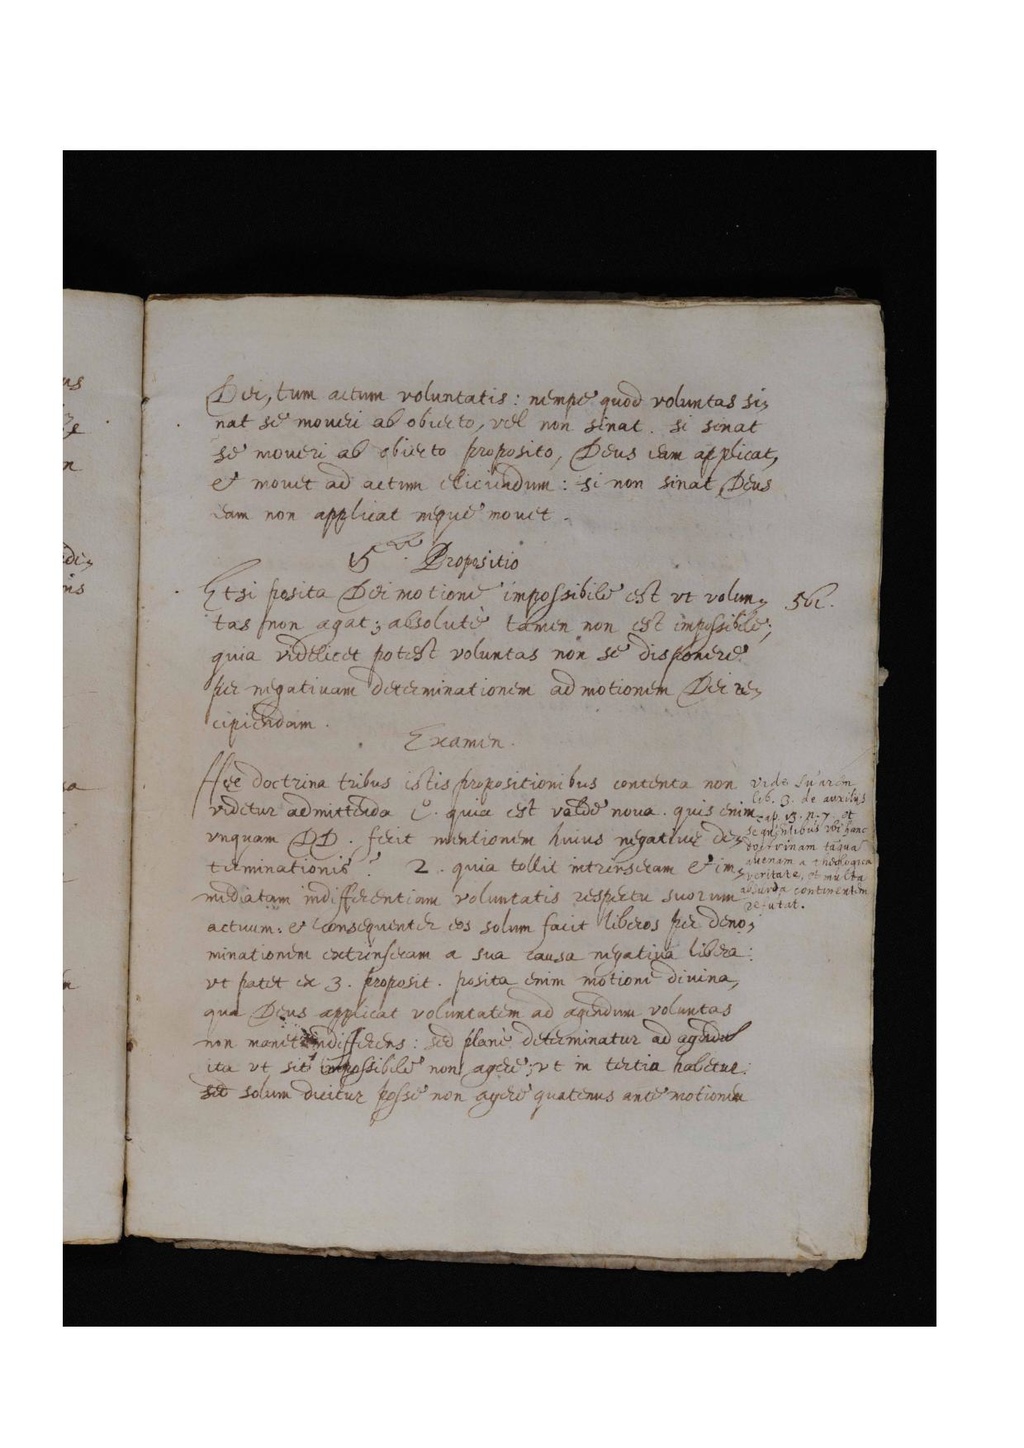 Dei, tum actum voluntatis: nempe quod voluntas si,
nat se moueri ab obiecto, vel non sinat. si sinat
se moueri ab obiecto proposito, Deus eam applicat,
et mouet ad actum eliciendum: si non sinat, Deus
eam non applicat neque mouet.
5.ta Propositio
Etsi posita Dei motione impossibile est vt volun,
tas non agat; absolutè tamen non est impossibile;
quia videlicet potest voluntas non se disponere
per negatiuam determinationem ad motionem Dei re,
cipiendam.
561.
Examen.
Hec doctrina tribus istis propositionibus contenta non
videtur admittenda. quia est valde noua. quis enim
vnquam DD. fecit mentionem huius negatiue de,
terminationis? 2. quia tollit intrinsecam et im,
mediatam indifferentiam voluntatis respectu suorum
actuum: et consequenter eos solum facit liberos per deno,
minationem extrinsecam a sua causa negatiua libera:
vt patet ex 3. proposit. posita enim motione diuina,
qua Deus applicat voluntatem ad agendum voluntas
non manet indifferens: sed planè determinatur ad agendū
ita vt sit impossibile non agere; vt in tertia habetur:
sed solum dicitur posse non agere quatenus ante motionem
vide Suarem
lib. 3. de auxiliis
cap. 13. n. 7. et
sequentibus vbi hanc
doctrinam tāquā
alienam a theologica
veritate, et multa
absurda continentem
refutat.